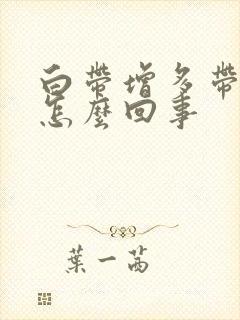 白帶增多帶
怎麼回事
葉一茜